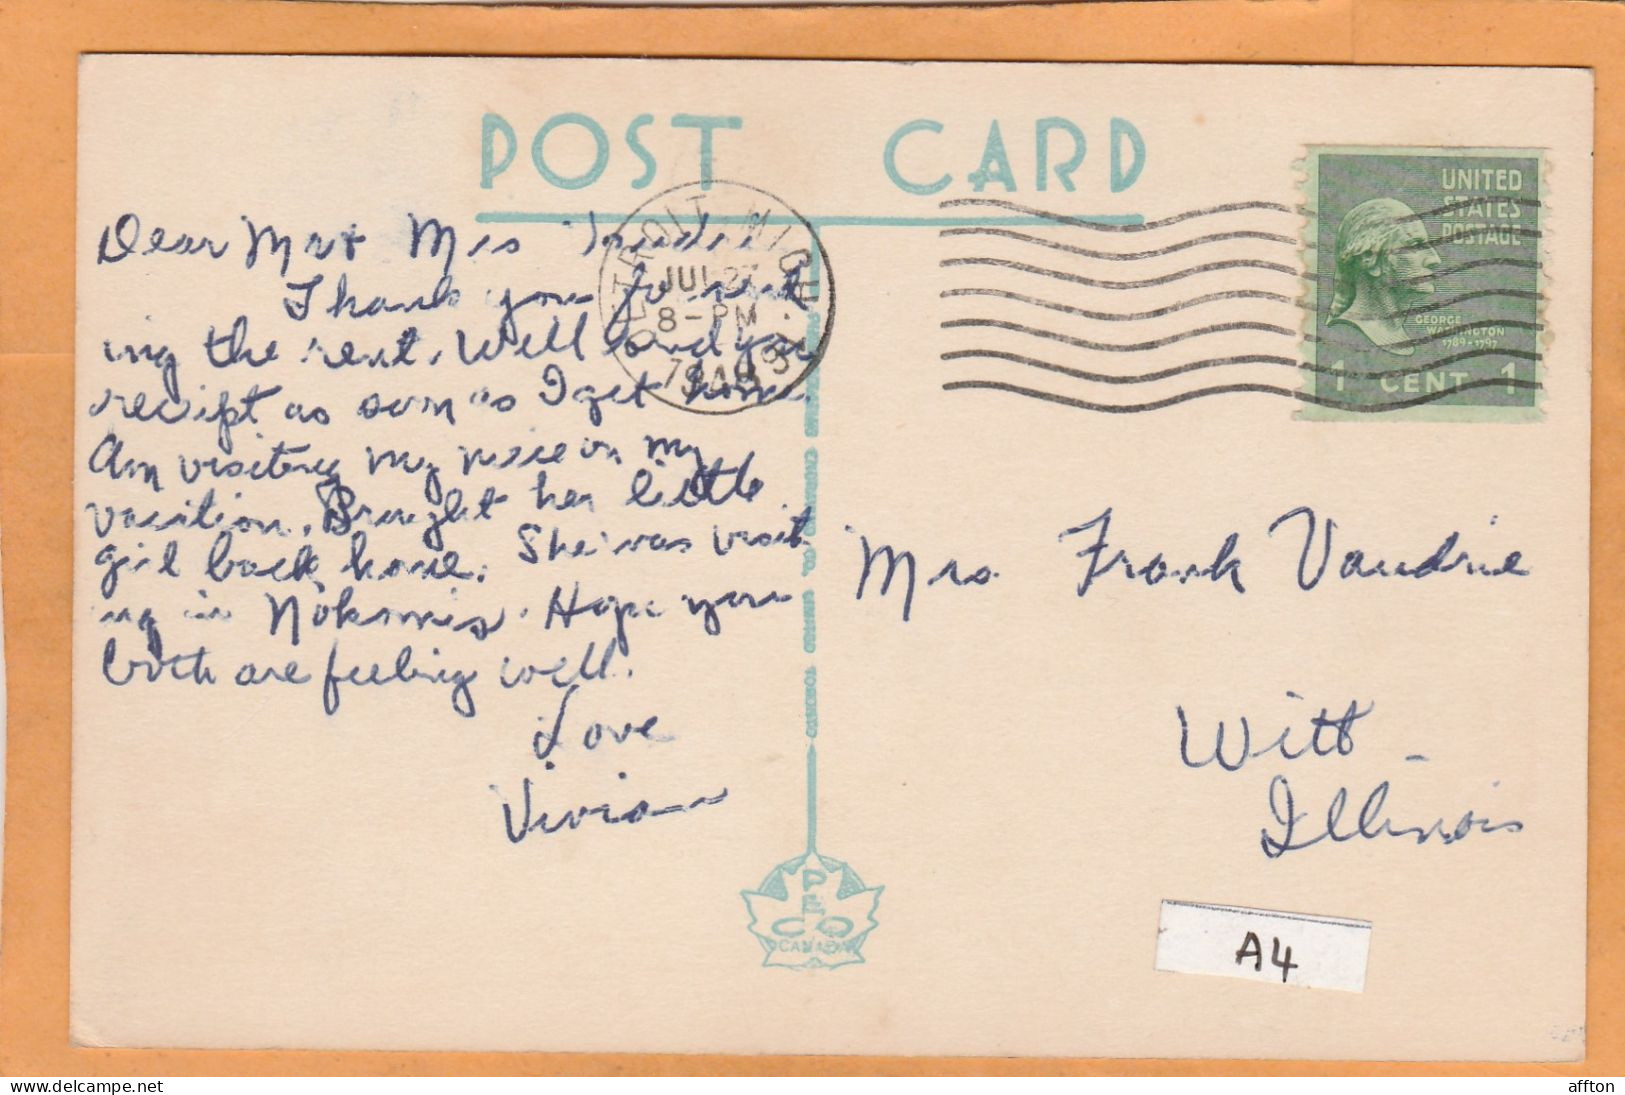 POST CARD
Dear Mr & Mrs
Thank you for send
ing the rent. Will send you
receipt as soon as I get home
Am visiting my niece on my
vacition. Brought her little
girl back home. She was visit
ing in Nokomis. Hope you
both are feeling well.
Love
Vivian
DETROIT, MICH.
JUL 27
8-PM
1949
UNITED
STATES
POSTAGE
GEORGE
WASHINGTON
1789-1797
1 CENT 1
Mrs Frank Vaudrie
Witt
Illinois
PECO
CANADA
A4
affton